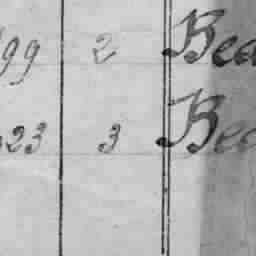 99 2 Bea
23 3 Bea